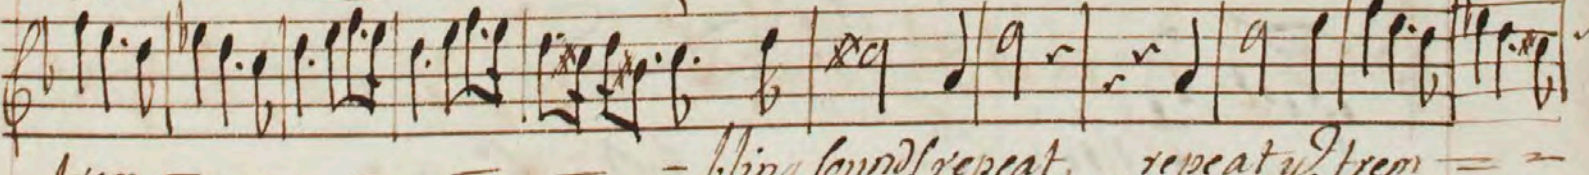 trem - - - - bling sounds repeat, repeat yᵉ trem - -